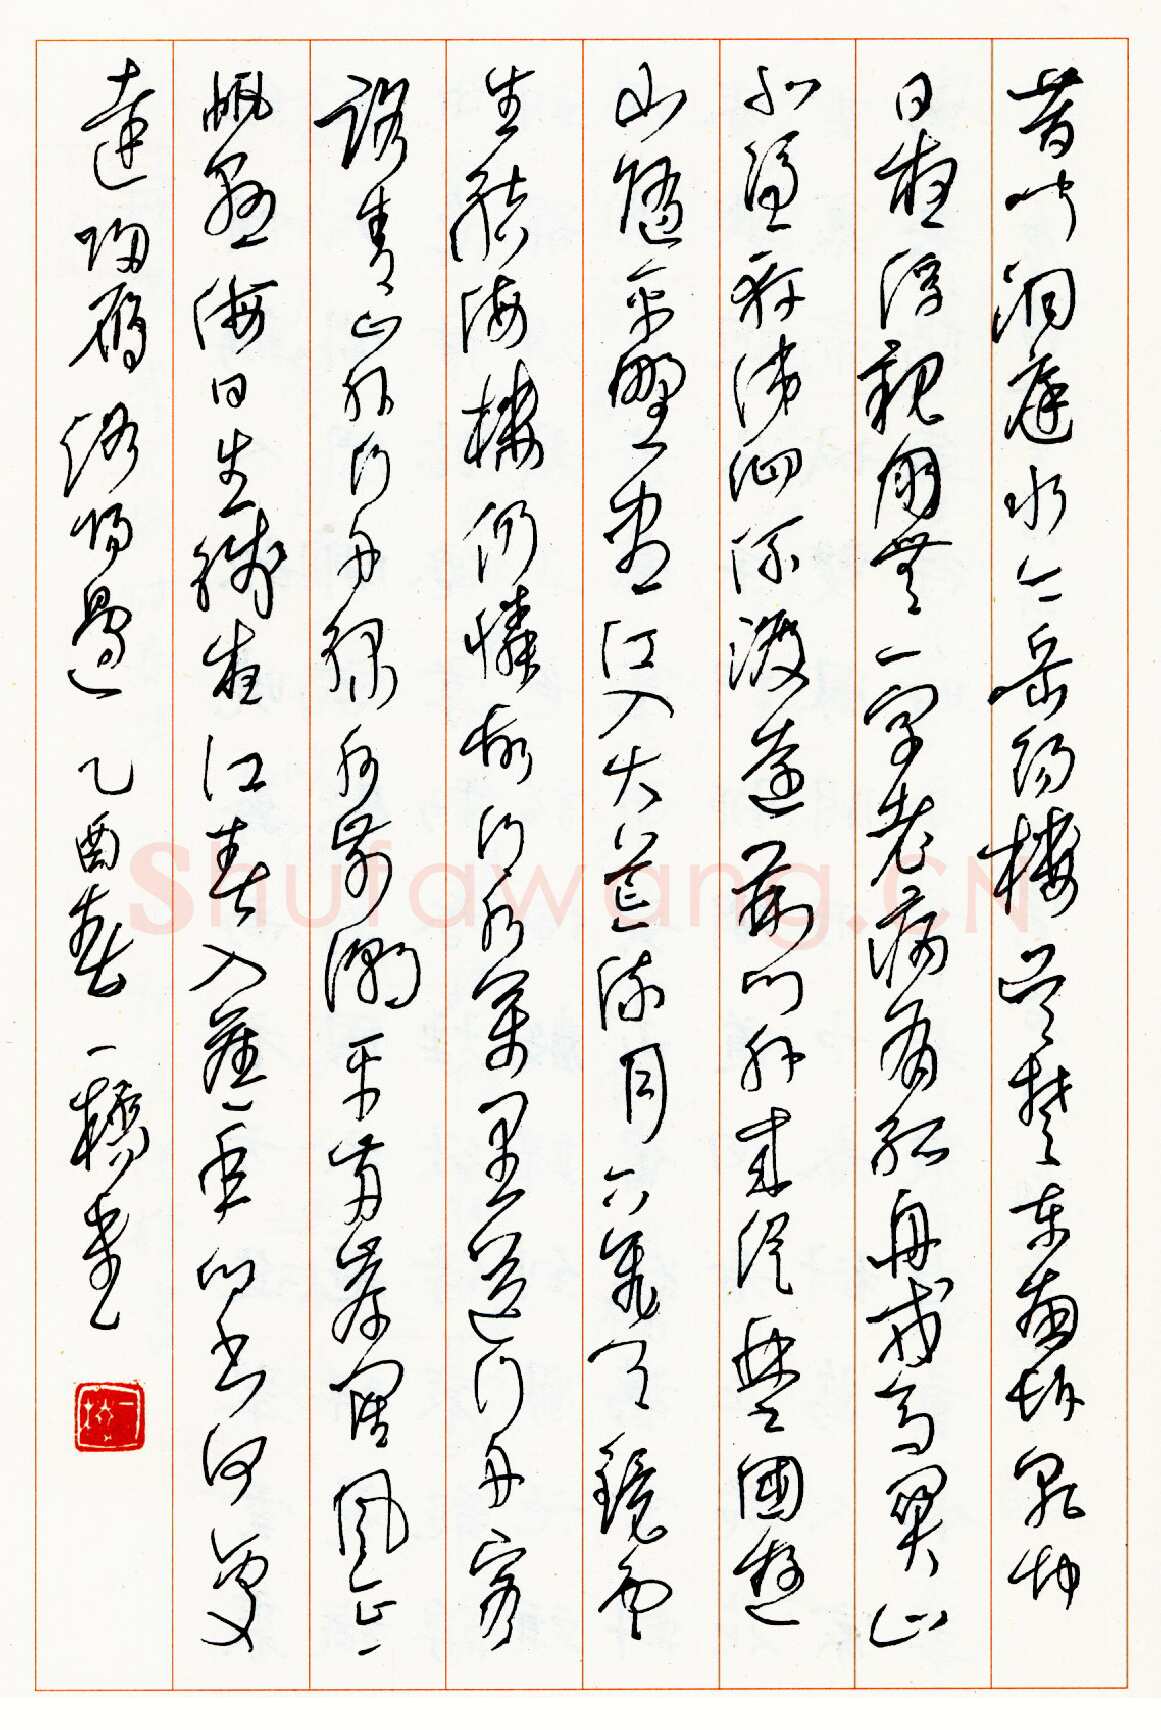 昔闻洞庭水今上岳陽樓吴楚东南坼乾坤
日夜浮親朋無一字老病有孤舟戎馬関山
北憑軒涕泗流渡遠荊門外來從楚國遊
山隨平野盡江入大荒流月下飛天鏡雲
生結海樓仍憐故鄉水萬里送行舟客
路青山外行舟綠水前潮平兩岸闊風正一
帆懸海日生殘夜江春入舊年鄉書何處
達歸雁洛陽邊乙酉春一橋書
Shufawang.CN